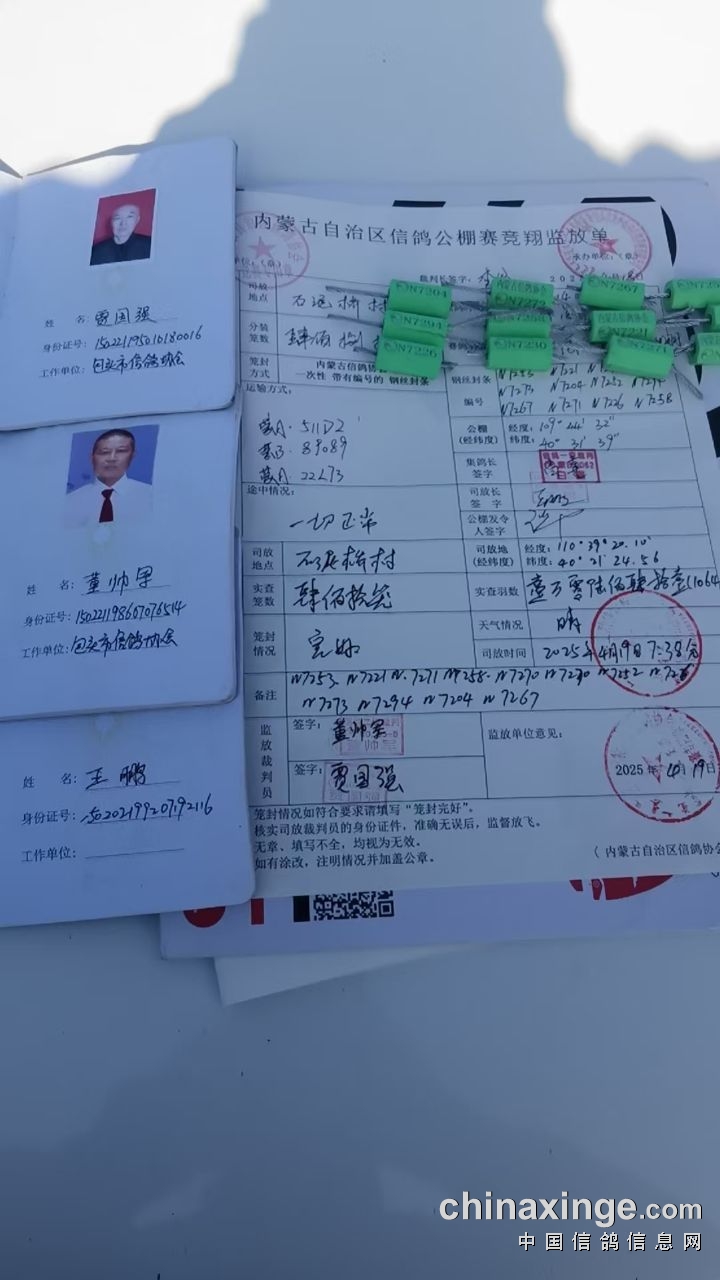 姓 名: 贾国强
身份证号: 150221195010180016
工作单位: 包头市信鸽协会
姓 名: 董帅军
身份证号: 150221198607076514
工作单位: 包头市信鸽协会
姓 名: 王鹏
身份证号: 150202199207192116
工作单位:
内蒙古自治区信鸽公棚赛竞翔监放单
单位:(章) 裁判长签字: 承办单位:(章)
司放地点
N7204 N7272 N7267
N7294 N7221
N7226 N7230 N7271
分装笼数
笼封方式 内蒙古信鸽协会 一次性 带有编号的 钢丝封条
钢丝封条编号
N7273 N7204 N7252 N7294
N7267 N7271 N7226 N7258
运输方式:
蒙A·511D2
蒙B·8F089
蒙A·22L73
公棚(经纬度) 经度: 109° 44′ 32″
纬度: 40° 31′ 39″
集鸽长签字
途中情况: 一切正常
司放长签字
公棚发令人签字
司放地点
司放地(经纬度) 经度: 110°39°20.10′
纬度: 40°21′24.56
实查笼数
实查羽数 壹万零陆佰肆拾壹(1064
笼封情况 完好
天气情况 晴
司放时间 2025年4月19日7:38分
备注 N7253 N7221 N7271 N7258 N7270 N7230 N7252 N7226
N7273 N7294 N7204 N7267
监放裁判员
签字: 董帅军
签字: 贾国强
监放单位意见:
2025年4月19日
笼封情况如符合要求请填写“笼封完好”。
核实司放裁判员的身份证件,准确无误后,监督放飞。
无章、填写不全,均视为无效。
如有涂改,注明情况并加盖公章。
(内蒙古自治区信鸽协会
chinaxinge.com
中国信鸽信息网